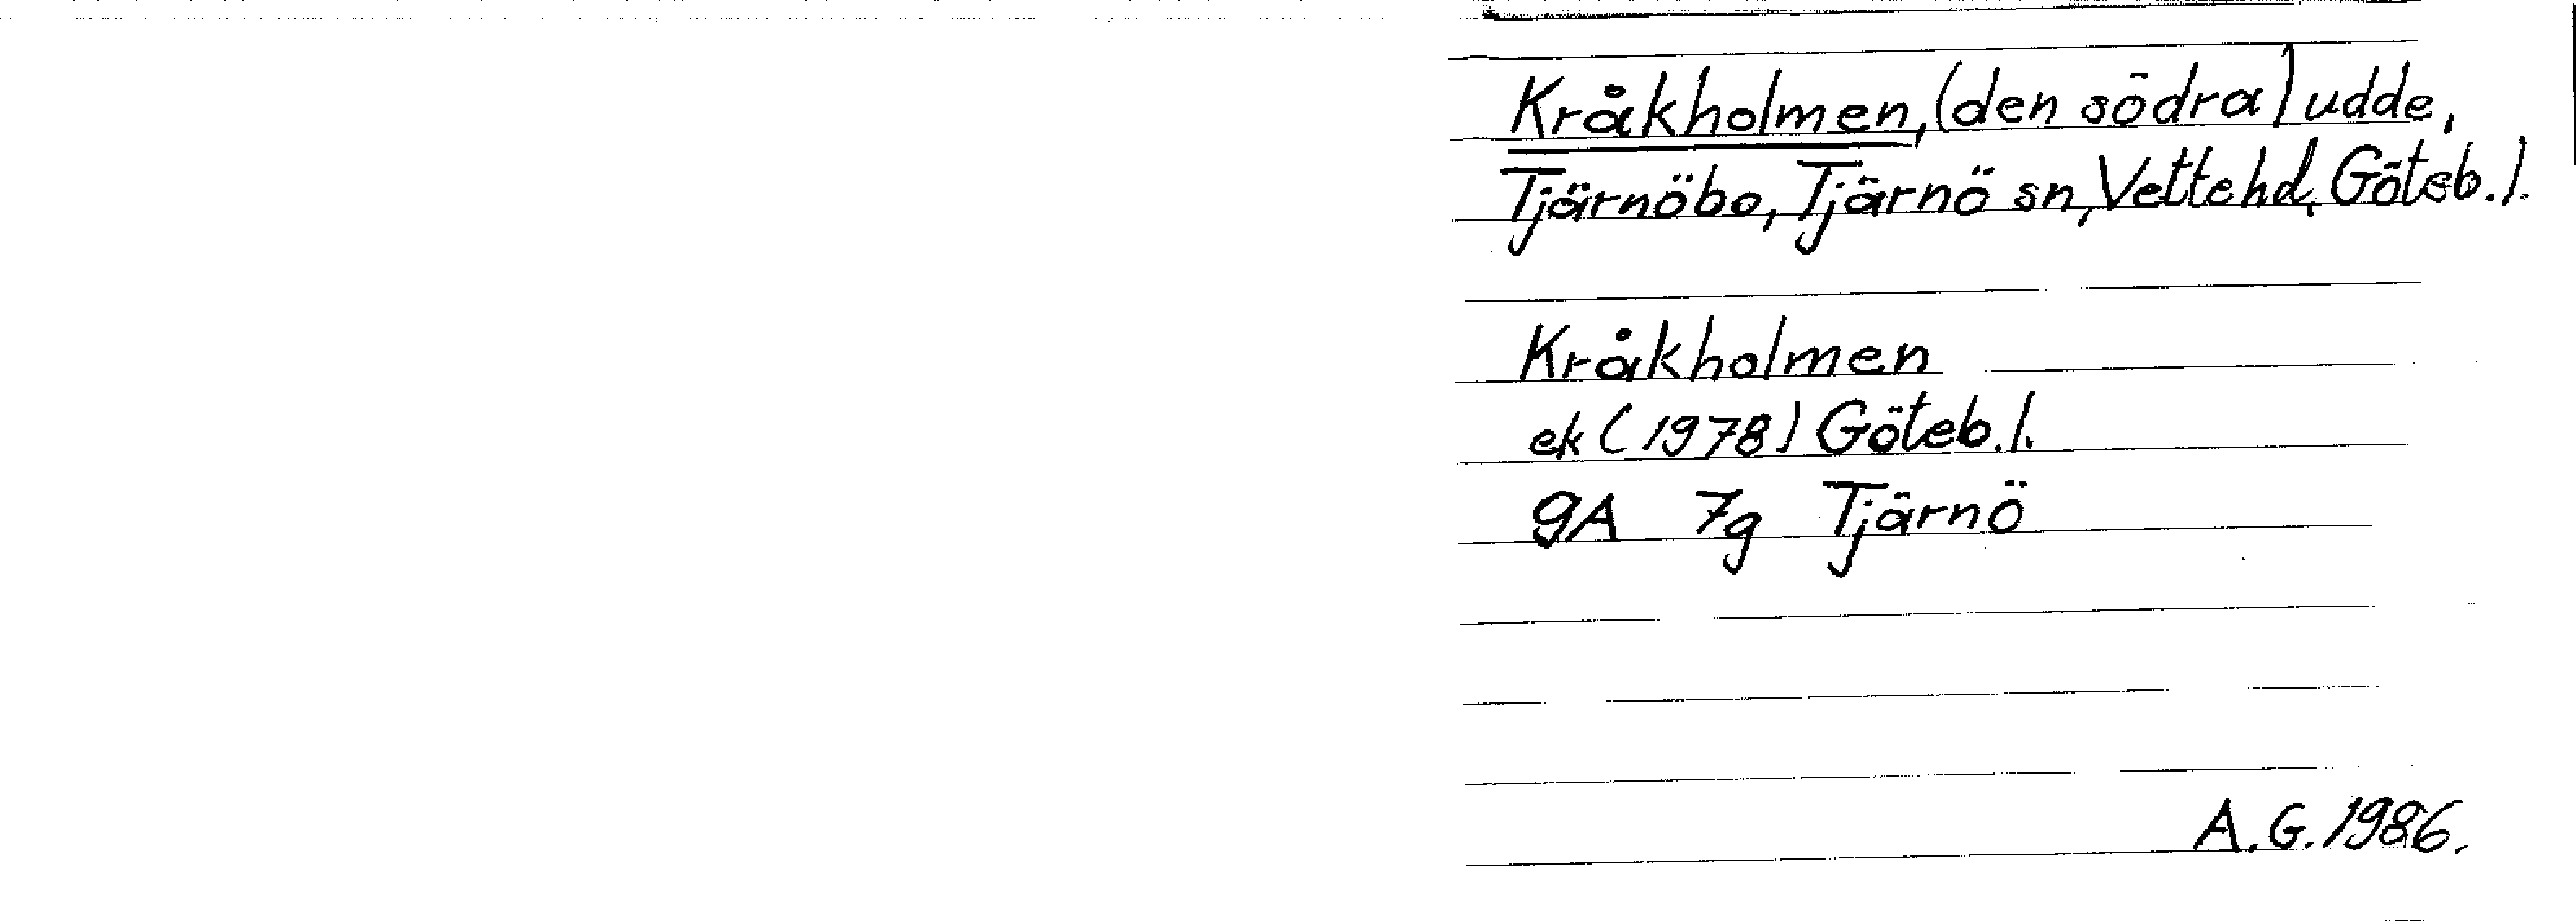 Kråkholmen, (den södra) udde,
Tjärnöbo, Tjärnö sn, Vette hd, Göteb. l.
Kråkholmen
ek (1978) Göteb. l.
9A 7g Tjärnö
A. G. 1986.